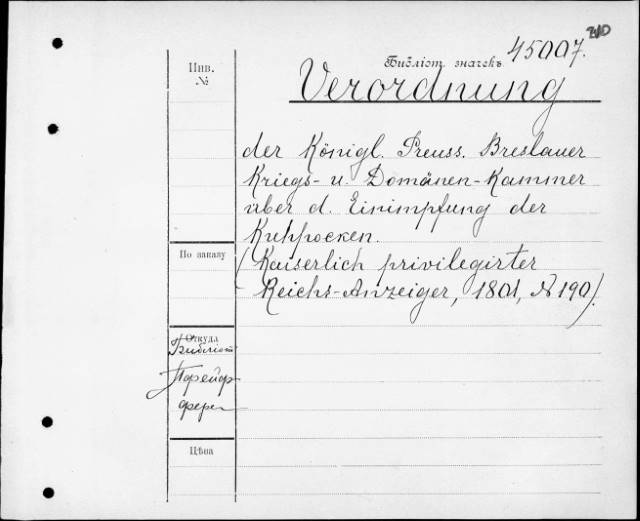 210
Библіот. значекъ. 45007.
Инв.
№
Verordnung
der Königl. Preuss. Breslauer
Kriegs- u. Domänen-Kammer
über d. Einimpfung der
Kuhpocken.
По заказу
(Kaiserlich privilegirter
Reichs-Anzeiger, 1801, № 190).
Откуда
Библіот
Цѣна